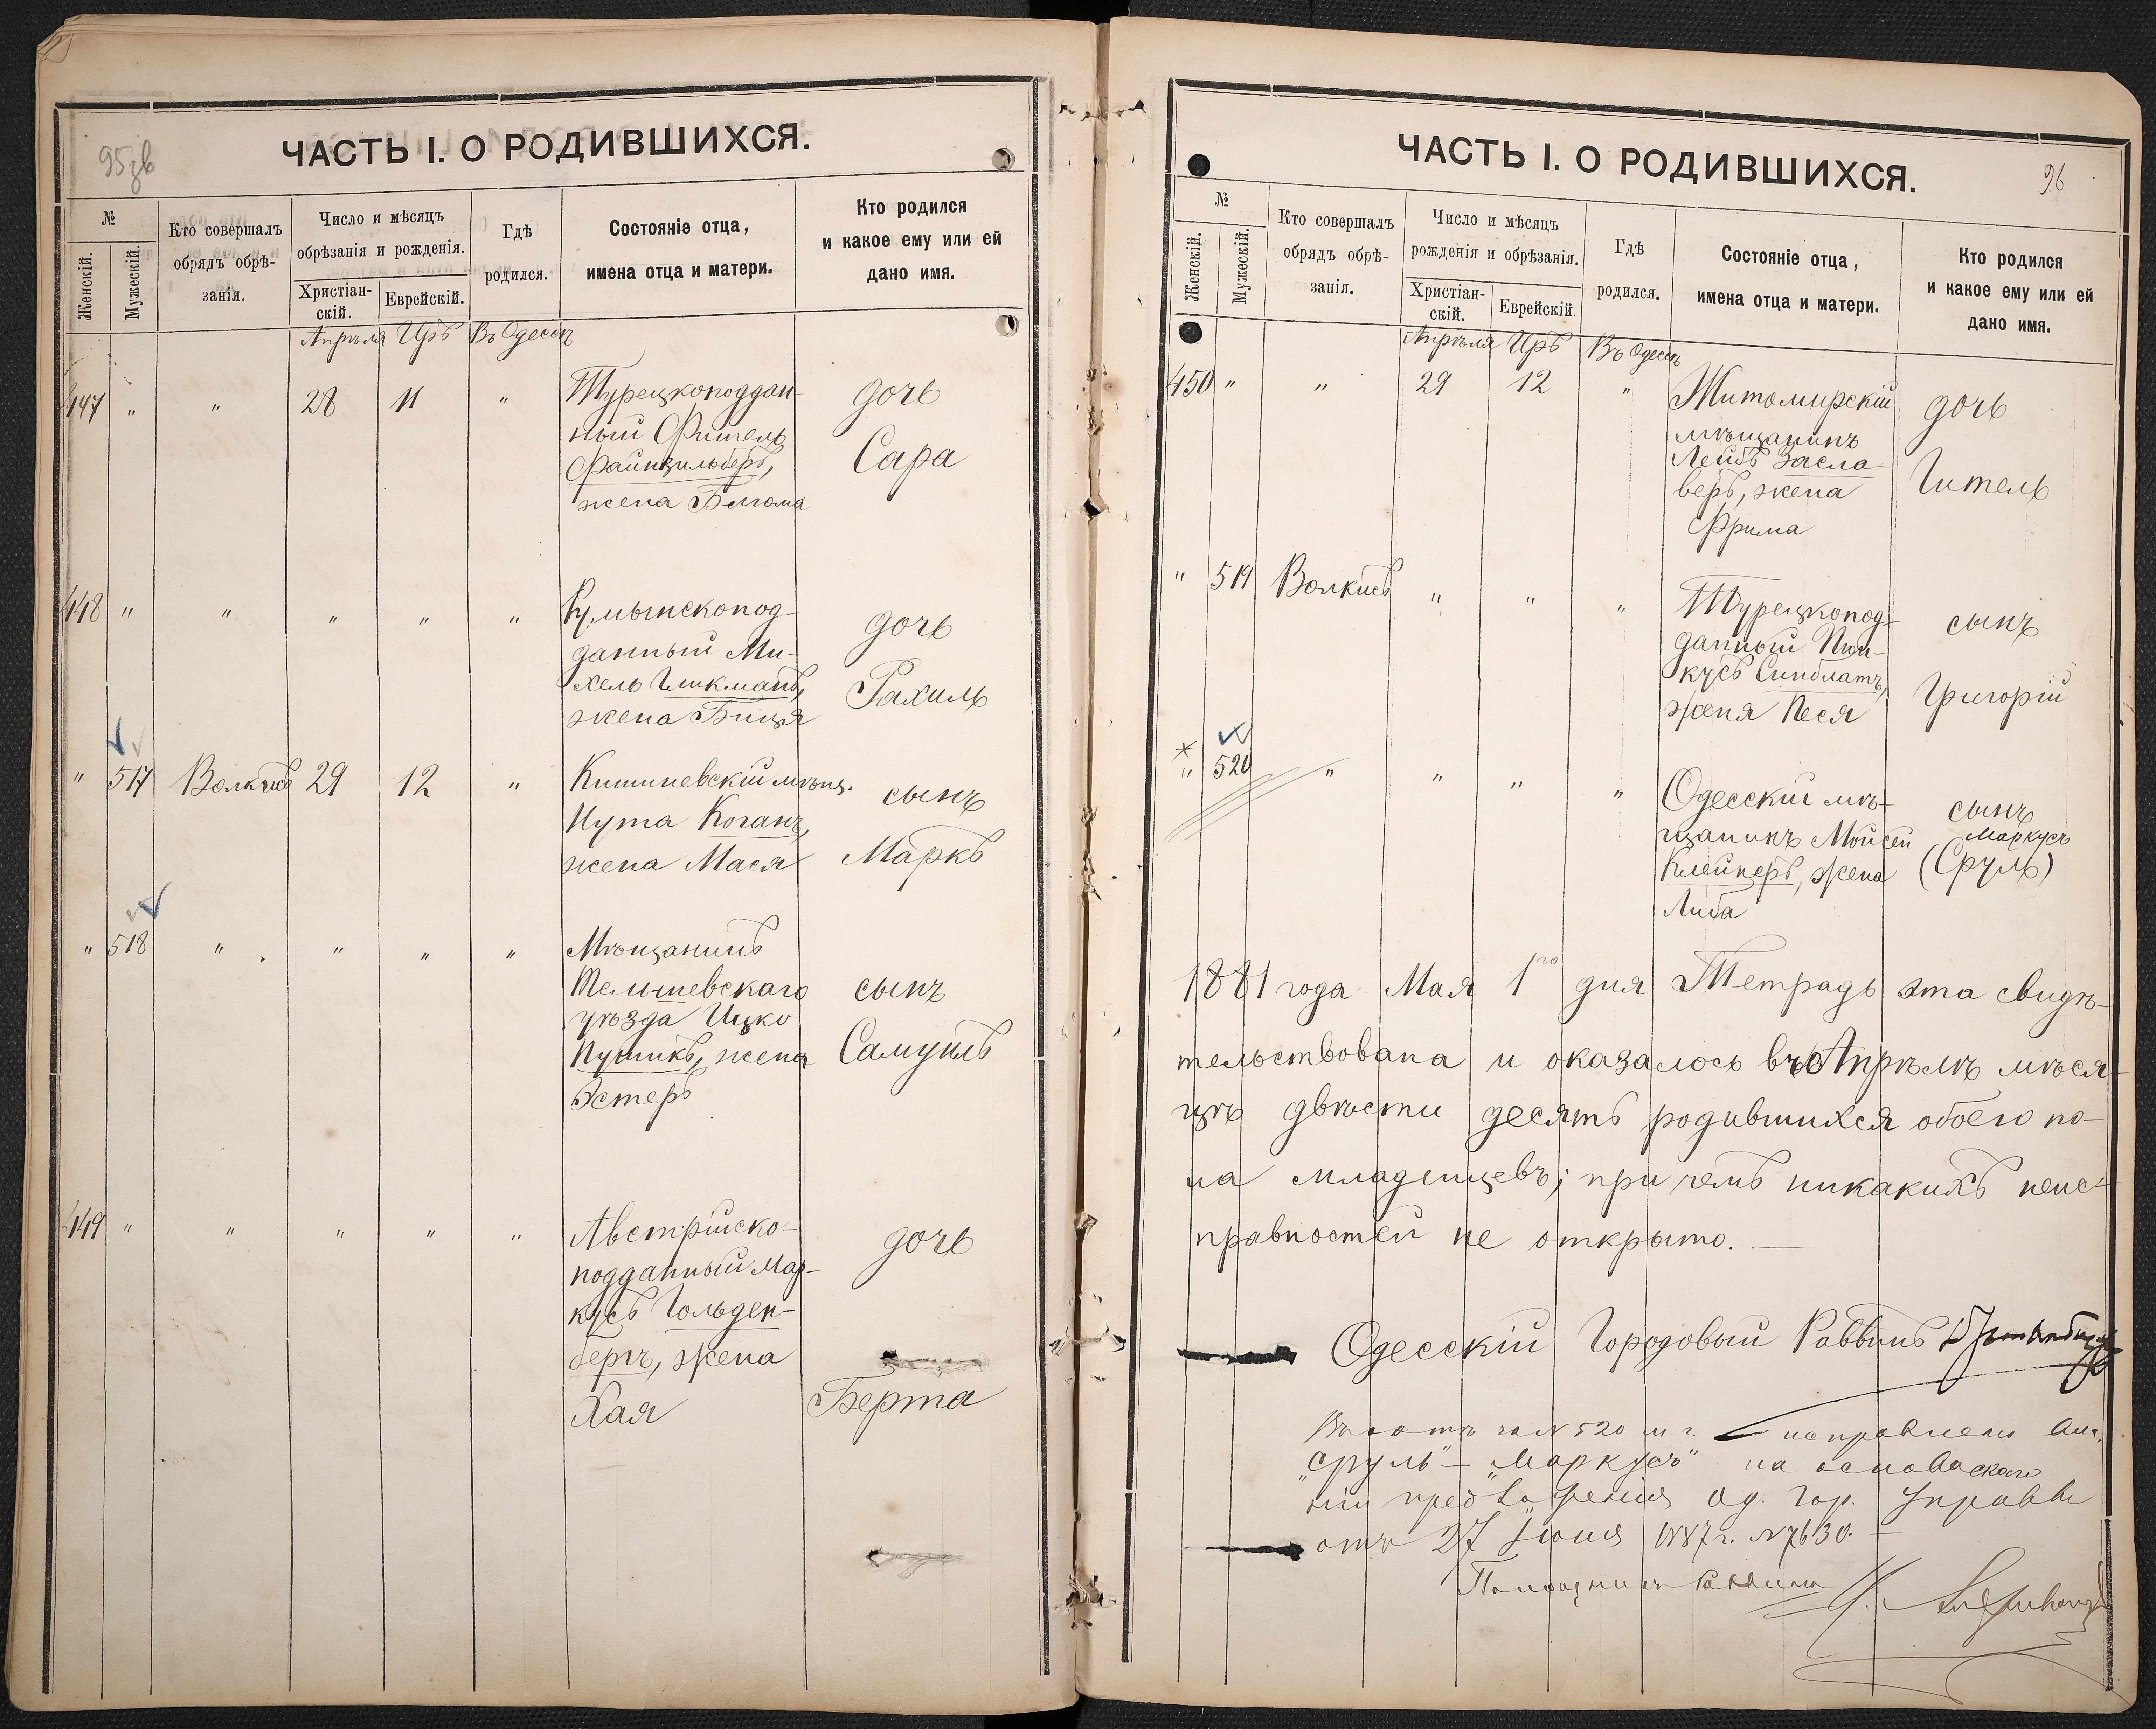 95зв
ЧАСТЬ I. О РОДИВШИХСЯ.
№
Женскій.
Мужескій.
Кто совершалъ
обрядъ обрѣ-
занія.
Число и мѣсяцъ
обрѣзанія и рожденія.
Христіан-
скій.
Еврейскій.
Гдѣ
родился.
Состояніе отца,
имена отца и матери.
Кто родился
и какое ему или ей
дано имя.
Апрѣля Иръ Въ Одессѣ
447 " " 28 11 " Турецкоподдан-
ный Фишель
Файнзильберъ,
жена
дочь
Сара
448 " " " " " Румынскопод-
данный Ми-
хель Гликманъ,
жена
дочь
Рахиль
" 517 Волкисъ 29 12 " Кишиневскій мѣщ.
Нута Коганъ,
жена Мася
сынъ
Маркъ
" 518 " " " " Мѣщанинъ
Тельшевскаго
уѣзда Ицко
жена
Эстеръ
сынъ
Самуилъ
449 " " " " " Австрійско-
подданный Мар-
кусъ Гольден-
бергъ, жена
Хая
дочь
Берта
96
ЧАСТЬ I. О РОДИВШИХСЯ.
№
Женскій.
Мужескій.
Кто совершалъ
обрядъ обрѣ-
занія.
Число и мѣсяцъ
рожденія и обрѣзанія.
Христіан-
скій.
Еврейскій
Гдѣ
родился.
Состояніе отца,
имена отца и матери.
Кто родился
и какое ему или ей
дано имя.
Апрѣля Иръ Въ Одессѣ
450 " " 29 12 " Житомирскій
мѣщанинъ
Лейбъ Засла-
веръ, жена
Фрима
дочь
Гитель
" 519 Волкисъ " " " Турецкопод-
данный Пин-
кусъ Синблатъ,
жена Песя
сынъ
Григорій
" 520 " " " " Одесскій мѣ-
щанинъ Мойсей
Клейнеръ, жена
Либа
сынъ
Маркусъ
(Сруль)
1881 года Мая 1го дня Тетрадь эта свидѣ-
тельствована и оказалось въ Апрѣлѣ мѣся-
цѣ двѣсти десять родившихся обоего по-
ла младенцевъ; при чемъ никакихъ неис-
правностей не открыто. —
Одесскій Городовый Раввинъ
№ 520 исправлено
"Сруль" — "Маркусъ" на основа-
ніи предложенія Од. Гор. Управы
отъ 27 1887 г. № 7630. —
Помощникъ Раввина